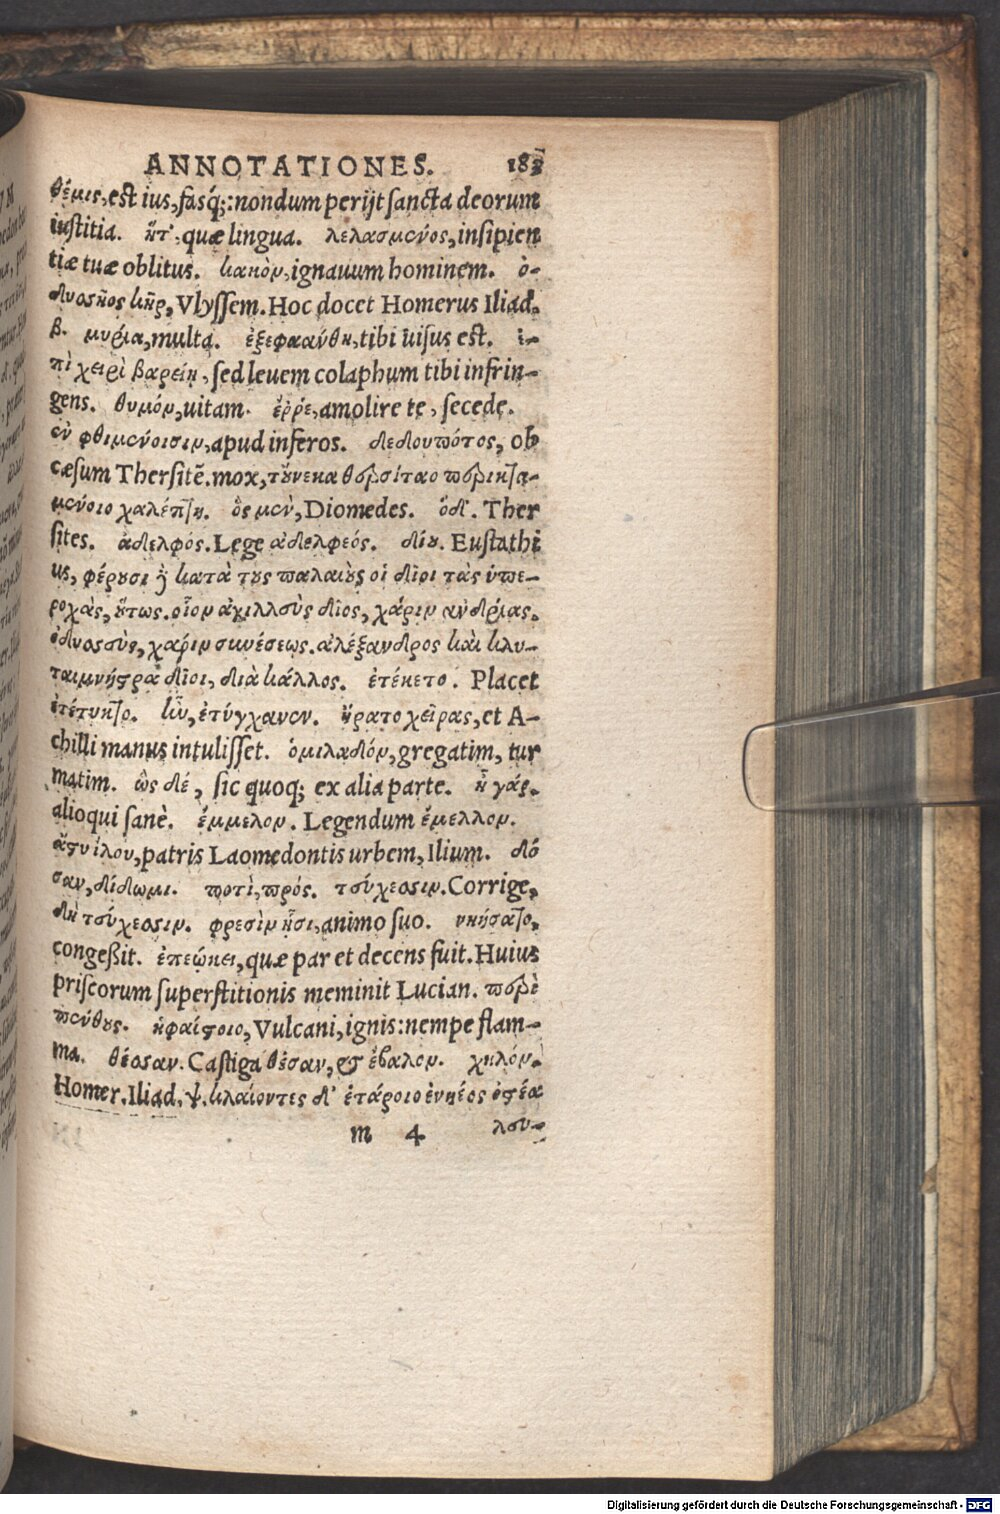 ANNOTATIONES. 183
θέμις, est ius, fasq́;: nondum perijt sancta deorum
iustitia. ἥτ', quæ lingua. λελασμένος, insipien
tiæ tuæ oblitus. κακὸν, ignauum hominem. ὀ-
δυοσῆος κῆρ, Vlyssem. Hoc docet Homerus Iliad.
β. μυρία, multa. ἐξεφαάνθη, tibi uisus est. ἐ-
πὶ χειρὶ βαρείῃ, sed leuem colaphum tibi infrin-
gens. θυμόν, uitam. ἐῤῥε, amolire te, secede.
ἐν φθιμένοισιν, apud inferos. δεδουπότος, ob
cæsum Thersitē. mox, τοὔνεκα θερσίταο περικτα-
μένοιο χαλέπτη. ὃς μὲν, Diomedes. ὅδ'. Ther
sites. ἀδελφός. Lege ἀδελφεός. δίου. Eustathi
us, φέρουσι ἢ κατὰ τοὺς παλαιοὺς οἱ δῖοι τὰς ὑπε-
ροχὰς, οὕτως. οἷον ἀχιλλεὺς δῖος, χάριν ἀνδρίας.
ὀδυοσεὺς, χάριν συνέσεως. ἀλέξανδρος καὶ κλυ-
ταιμνήστρα δῖοι, διὰ κάλλος. ἐτέκετο. Placet
ἐτέτυκτο. κῦ, ἐτύγχανεν. ἤρατο χεῖρας, et A-
chilli manus intulisset. ὁμιλαδόν, gregatim, tur
matim. ὣς δέ, sic quoq; ex alia parte. ἦ γάρ.
alioqui sanè. ἔμμελον. Legendum ἔμελλον.
ἄστυ ἴλου, patris Laomedontis urbem, Ilium. δό
σαν, δίδωμι. ποτὶ, πρός. τεύχεοσιν. Corrige,
δὴ τεύχεοσιν. φρεσὶν ᾗσι, animo suo. νηήσατο,
congeßit. ἐπεῴκει, quæ par et decens fuit. Huius
priscorum superstitionis meminit Lucian. περὶ
πένθους. ἡφαίστοιο, Vulcani, ignis: nempe flam-
ma. θέοσαν. Castiga θέσαν, & ἔβαλον. χηλόν.
Homer. Iliad. ψ. κλαίοντες δ' ἑτάροιο ἐνηέος ὀστέα
m 4 λευ-
Digitalisierung gefördert durch die Deutsche Forschungsgemeinschaft - DFG